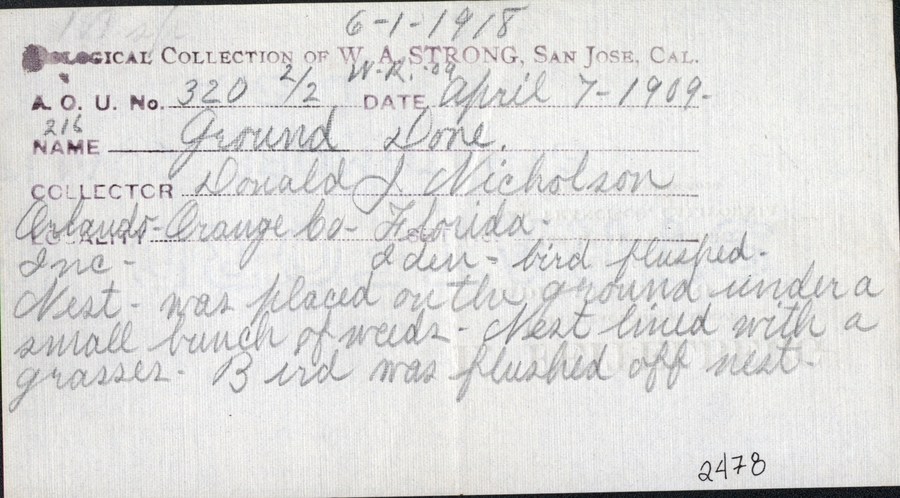 6-1-1918
OLOGICAL COLLECTION OF W. A. STRONG, SAN JOSE, CAL.
A. O. U. No. 320 2/2 W.R. '09 DATE April 7-1909-
216
NAME Ground Dove.
COLLECTOR Donald J Nicholson
LOCALITY Orlando- Orange Co- Florida-
Inc- Iden- bird flushed.
Nest- was placed on the ground under a
small bunch of weeds- Nest lined with a
grasses- Bird was flushed off nest-
2478